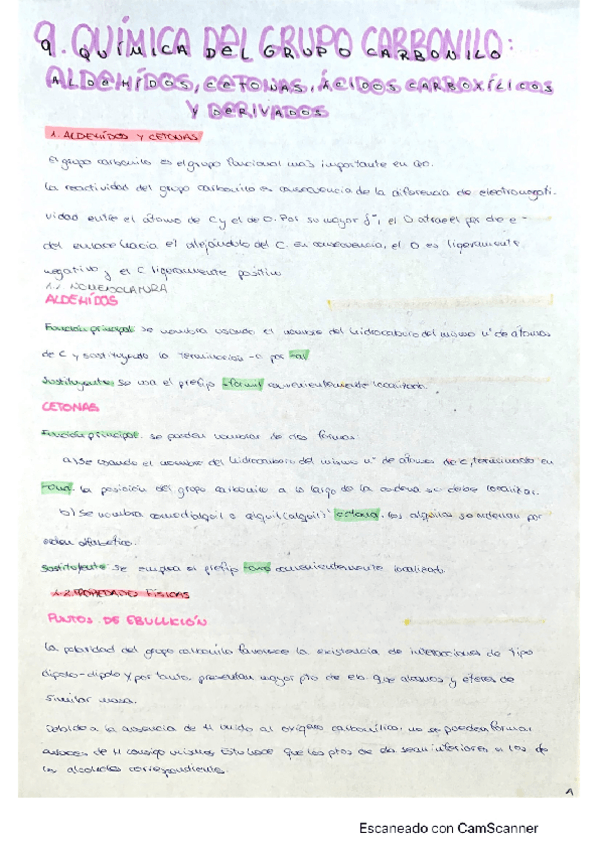 9. QUÍMICA DEL GRUPO CARBONILO:
ALDEHÍDOS, CETONAS, ÁCIDOS CARBOXÍLICOS
Y DERIVADOS
1. ALDEHÍDOS Y CETONAS
El grupo carbonilo es el grupo funcional más importante en QO.
La reactividad del grupo carbonilo es consecuencia de la diferencia de electronegati-
vidad entre el átomo de C y el de O. Por su mayor δ⁻, el O atrae el par de e⁻
del enlace hacia él alejándolo del C. En consecuencia, el O es ligeramente
negativo y el C ligeramente positivo
1.1. NOMENCLATURA
ALDEHÍDOS
Función principal: se nombra usando el nombre del hidrocarburo del mismo nº de átomos
de C y sustituyendo la terminación -o por -al
Sustituyente: se usa el prefijo -formil convenientemente localizado.
CETONAS
Función principal: se pueden nombrar de dos formas
a) Se usando el nombre del hidrocarburo del mismo nº de átomos de C, terminando en
-ona. la posición del grupo carbonilo a lo largo de la cadena se debe localizar.
b) Se nombra como dialquil o alquil(alquil) cetona. los alquilos se ordenan por
orden alfabético.
Sustituyente: se emplea el prefijo -oxo convenientemente localizado
1.2. PROPIEDADES FÍSICAS
PUNTOS DE EBULLICIÓN
La polaridad del grupo carbonilo favorece la existencia de interacciones de tipo
dipolo-dipolo y por tanto, presentan mayor pto de eb. que alcanos y éteres de
similar masa.
Debido a la ausencia de H unido al oxígeno carbonílico, no se pueden formar
enlaces de H consigo mismos. Esto hace que los ptos de eb sean inferiores a los de
los alcoholes correspondiente.
1
Escaneado con CamScanner